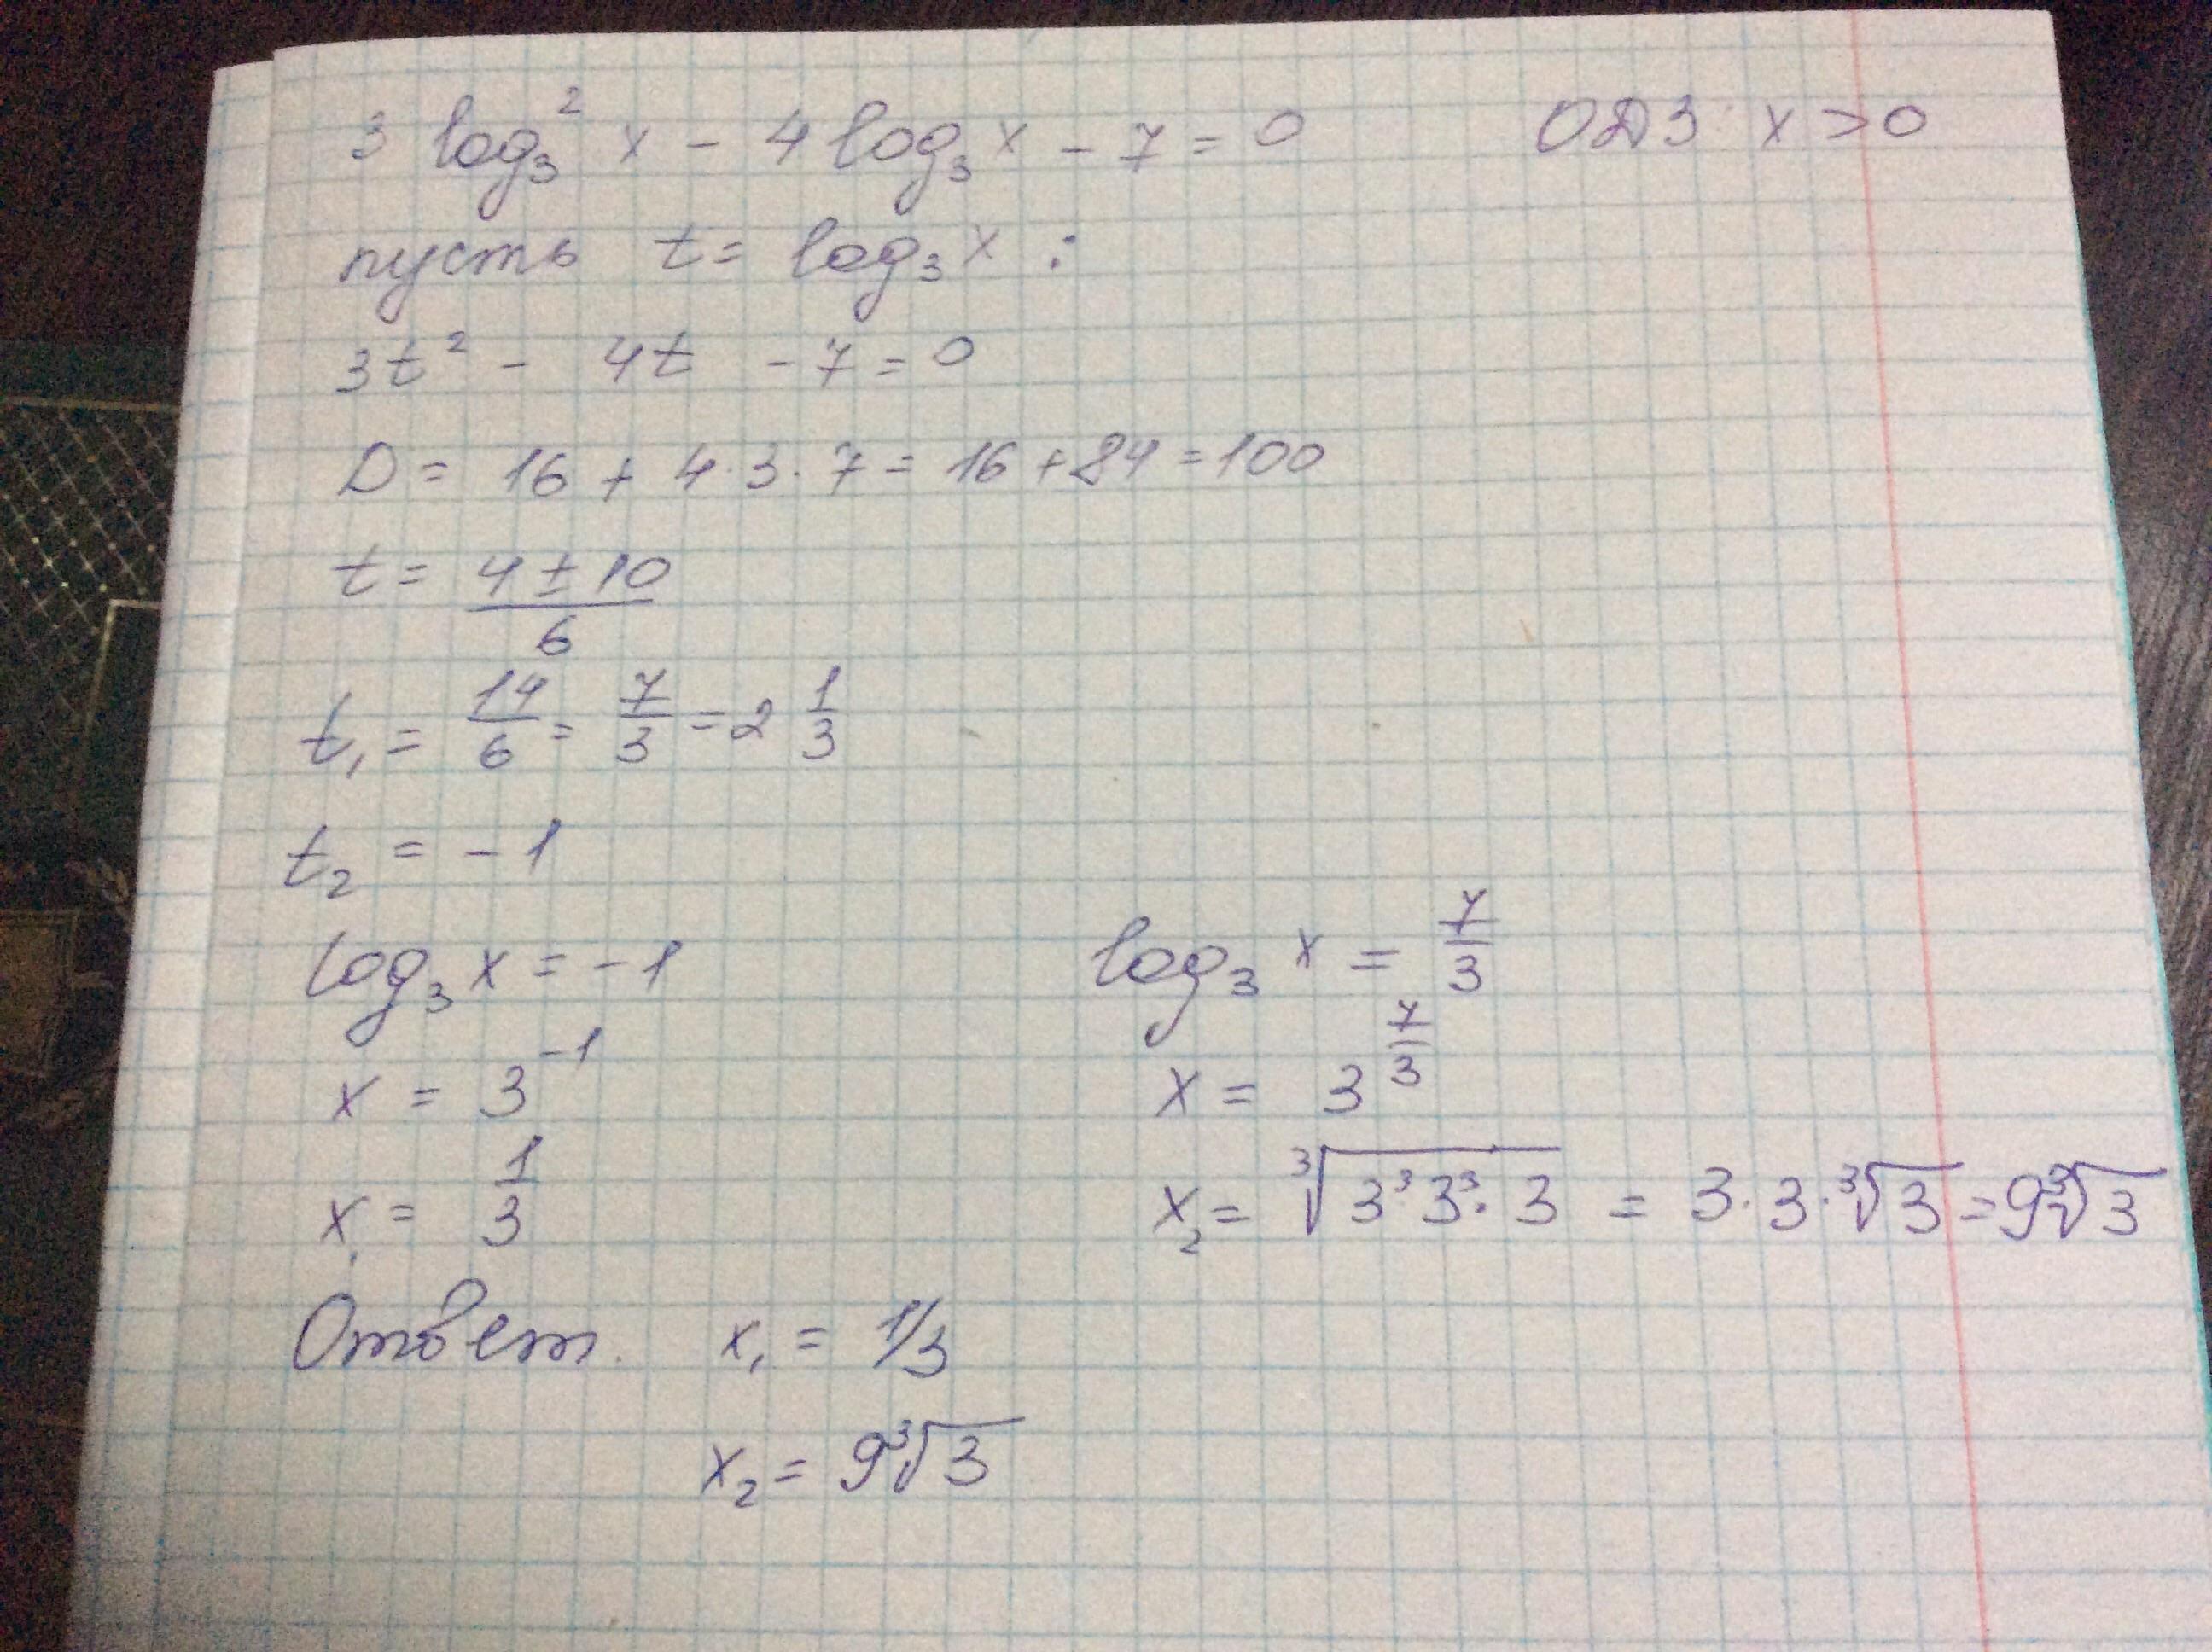 3 log₃² x - 4 log₃ x - 7 = 0 ОДЗ: x > 0
пусть t = log₃ x :
3t² - 4t - 7 = 0
D = 16 + 4·3·7 = 16 + 84 = 100
t = (4 ± 10)/6
t₁ = 14/6 = 7/3 = 2 1/3
t₂ = -1
log₃ x = -1 log₃ x = 7/3
x = 3⁻¹ x = 3^(7/3)
x₁ = 1/3 x₂ = ∛(3³·3³·3) = 3·3·∛3 = 9∛3
Ответ. x₁ = 1/3
x₂ = 9∛3